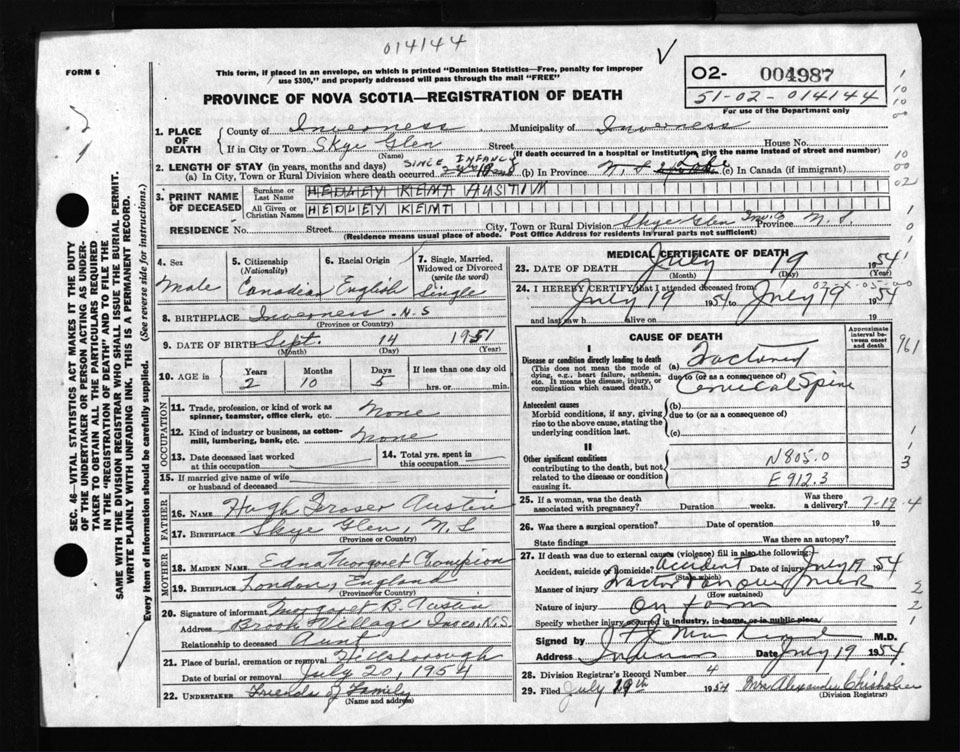 014144
FORM 6
This form, if placed in an envelope, on which is printed "Dominion Statistics—Free, penalty for improper
use $300," and properly addressed will pass through the mail "FREE"
02- 004987
51-02-014144
For use of the Department only
PROVINCE OF NOVA SCOTIA—REGISTRATION OF DEATH
1. PLACE OF DEATH
County of Inverness Municipality of Inverness
If in City or Town Skye Glen Street House No.
(Name) (If death occurred in a hospital or institution, give the name instead of street and number)
2. LENGTH OF STAY (in years, months and days) SINCE INFANCY
(a) In City, Town or Rural Division where death occurred (b) In Province N.S. (c) In Canada (if immigrant)
3. PRINT NAME OF DECEASED
Surname or Last Name HEDLEY KEMT AUSTIN
All Given or Christian Names HEDLEY KEMT
RESIDENCE No. Street City, Town or Rural Division Skye Glen Inv. Co Province N.S.
(Residence means usual place of abode. Post Office Address for residents in rural parts not sufficient)
4. Sex
Male
5. Citizenship (Nationality)
Canadian
6. Racial Origin
English
7. Single, Married, Widowed or Divorced (write the word)
Single
8. BIRTHPLACE Inverness N.S
(Province or Country)
9. DATE OF BIRTH Sept. 14 1951
(Month) (Day) (Year)
10. AGE in Years Months Days If less than one day old
2 10 5 hrs. or min.
OCCUPATION
11. Trade, profession, or kind of work as spinner, teamster, office clerk, etc. None
12. Kind of industry or business, as cotton-mill, lumbering, bank, etc. None
13. Date deceased last worked at this occupation
14. Total yrs. spent in this occupation
15. If married give name of wife or husband of deceased
FATHER
16. NAME Hugh Fraser Austin
17. BIRTHPLACE Skye Glen, N.S
(Province or Country)
MOTHER
18. MAIDEN NAME Edna Margaret Champion
19. BIRTHPLACE London, England
(Province or Country)
20. Signature of informant Margaret B. Austin
Address Brook Village Inv.co. N.S.
Relationship to deceased Aunt
21. Place of burial, cremation or removal Hillsborough
Date of burial or removal July 20, 1954
22. UNDERTAKER Friends of Family
(Name and address)
MEDICAL CERTIFICATE OF DEATH
23. DATE OF DEATH July 19 1954
(Month) (Day) (Year)
24. I HEREBY CERTIFY that I attended deceased from
July 19 1954 to July 19 1954
and last saw h alive on 19
CAUSE OF DEATH
Approximate interval between onset and death
I
Disease or condition directly leading to death
(This does not mean the mode of dying, e.g., heart failure, asthenia, etc. It means the disease, injury, or complication which caused death.)
(a) Fractured
due to (or as a consequence of)
Cervical Spine
Antecedent causes
Morbid conditions, if any, giving rise to the above cause, stating the underlying condition last.
(b)
due to (or as a consequence of)
(c)
II
Other significant conditions contributing to the death, but not related to the disease or condition causing it.
N805.0
E912.3
25. If a woman, was the death associated with pregnancy? Duration weeks. Was there a delivery? 7-19-4
26. Was there a surgical operation? Date of operation 19
State findings Was there an autopsy?
27. If death was due to external causes (violence) fill in also the following:
Accident, suicide or homicide? Accident Date of injury July 19 1954
(State which)
Manner of injury Tractor ran over neck
(How sustained)
Nature of injury On farm
Specify whether injury occurred in industry, in home, or in public place
Signed by M.D.
Address Date July 19 1954
28. Division Registrar's Record Number 4
29. Filed July 19th 1954 Mrs Alexander Chisholm
(Division Registrar)
SEC. 46—VITAL STATISTICS ACT MAKES IT THE DUTY
OF THE UNDERTAKER OR PERSON ACTING AS UNDER-
TAKER TO OBTAIN ALL THE PARTICULARS REQUIRED
IN THE "REGISTRATION OF DEATH" AND TO FILE THE
SAME WITH THE DIVISION REGISTRAR WHO SHALL ISSUE THE BURIAL PERMIT.
WRITE PLAINLY WITH UNFADING INK. THIS IS A PERMANENT RECORD.
Every item of information should be carefully supplied. (See reverse side for instructions.)
961